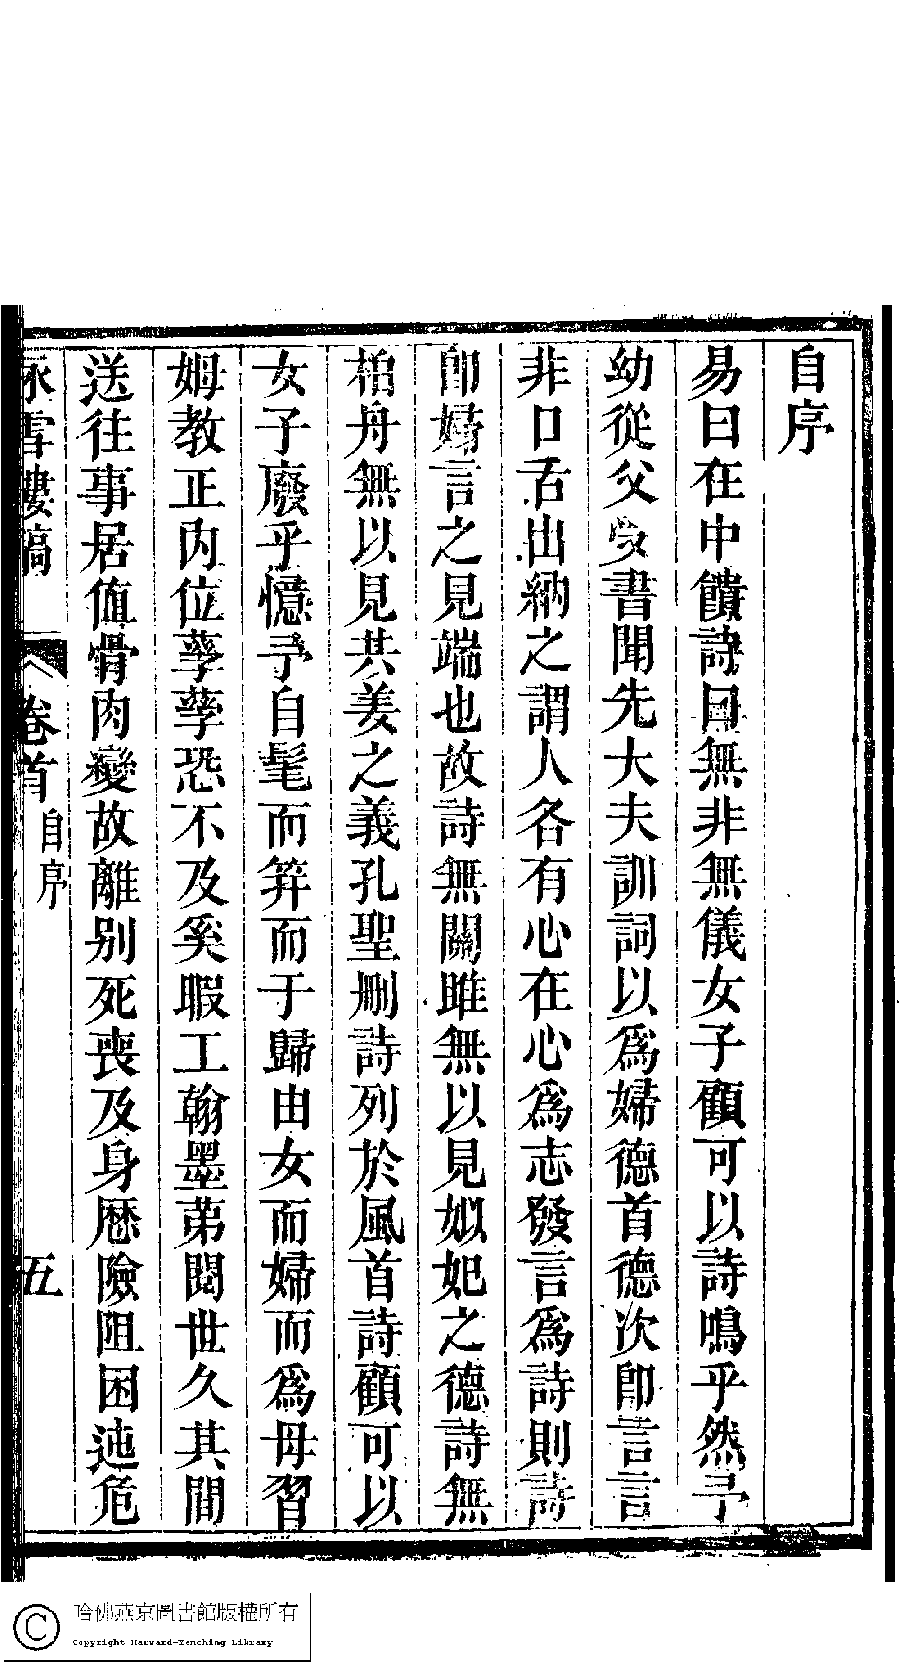 自序
易曰在中饋詩國無非無儀女子顧可以詩鳴乎然予
幼從父受書聞先大夫訓詞以爲婦德首德次卽言言
非口舌出納之謂人各有心在心爲志發言爲詩則詩
卽婦言之見端也故詩無關雎無以見姒妃之德詩無
栢舟無以見共姜之義孔聖刪詩列於風首詩顧可以
女子廢乎憶予自髦而笄而于歸由女而婦而爲母習
姆教正内位孳孳恐不及奚暇工翰墨苐閱世久其間
送往事居值骨肉變故離别死喪及身歷險阻困迍危
詠雪樓稿
卷首
自序
五
哈佛燕京圖書館版權所有
Copyright Harvard-Yenching Library